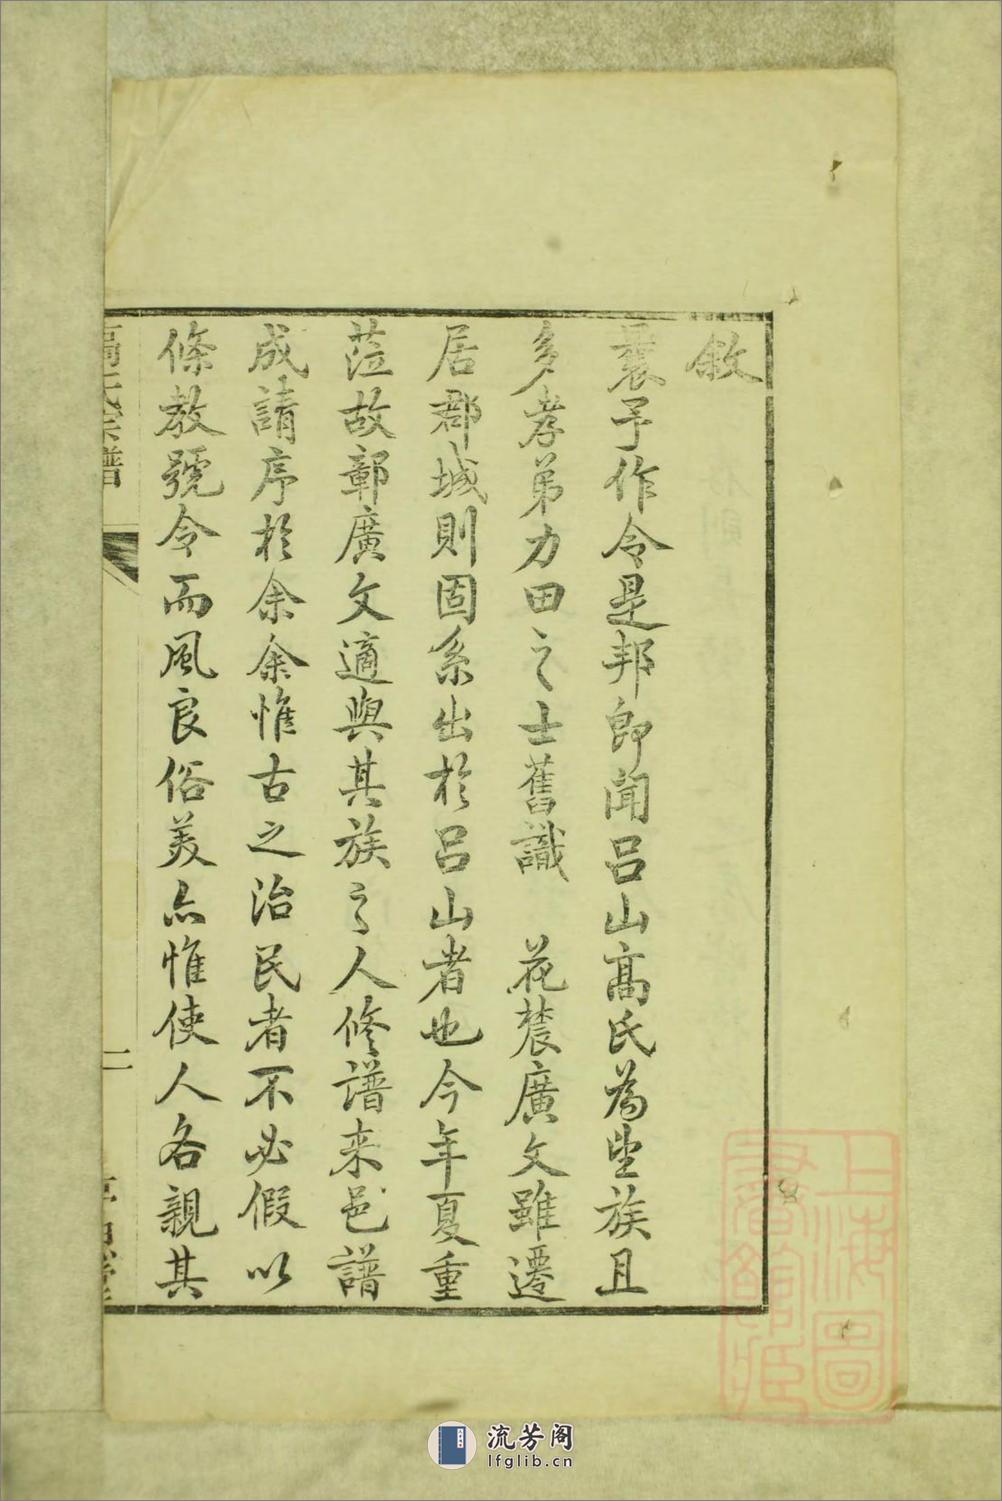 敘
曩予作令是邦卽聞呂山高氏為望族且
多孝弟力田之士舊識　花農廣文雖遷
居郡城則固系出於呂山者也今年夏重
蒞故鄣廣文適與其族之人修譜来邑譜
成請序於余余惟古之治民者不必假以
條教號令而風良俗美亦惟使人各親其
高氏宗譜
一
上海圖
書館藏
流芳阁
lfglib.cn